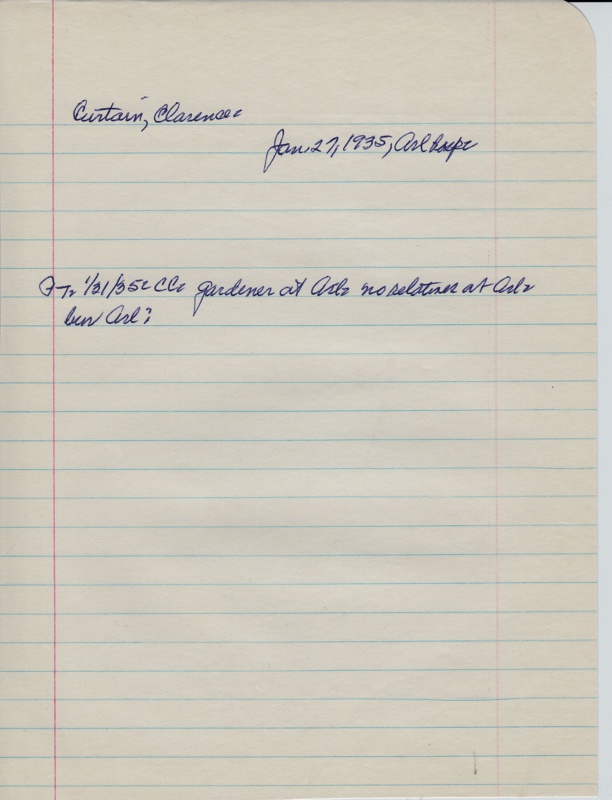 Curtain, Clarence
Jan. 27, 1935, Arl
1/31/35 CC gardener at Arl no relatives at Arl
bur Arl?